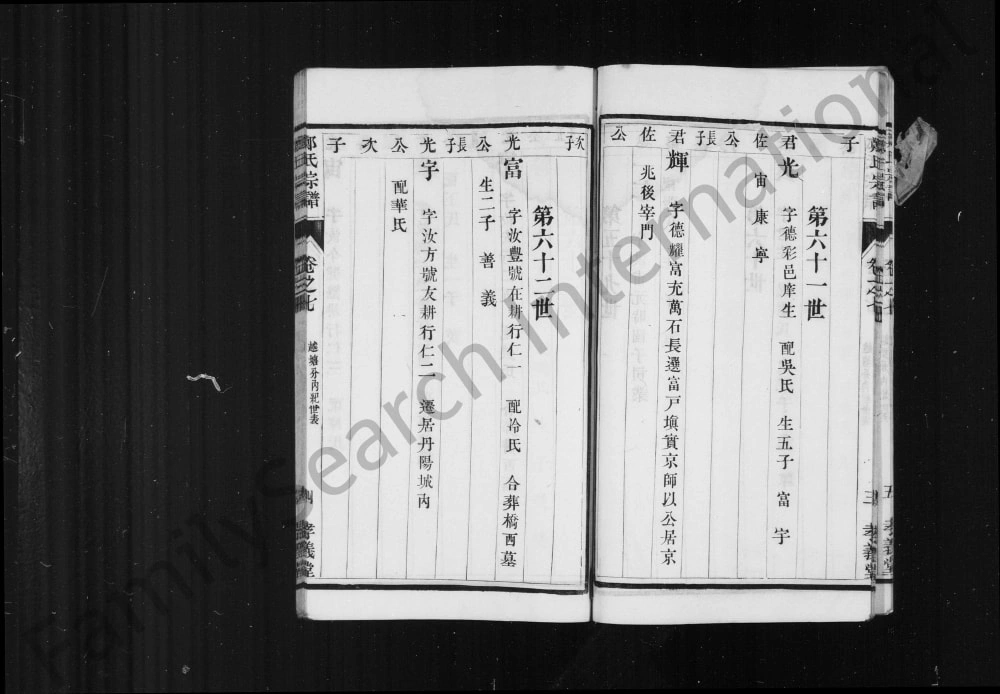 子
第六十一世
君佐公長子
光 字德彩邑庠生 配吳氏 生五子 富 宇
宙 康 寧
君佐公次子
輝 字德耀富充萬石長選富戸塡實京師以公居京
兆後宰門
第六十二世
光公長子
富 字汝豐號在耕行仁一 配冷氏 合葬橋西墓
生二子 善 義
光公次子
宇 字汝方號友耕行仁二 遷居丹陽城内
配華氏
氏宗譜
卷之七
孝義堂
FamilySearch International